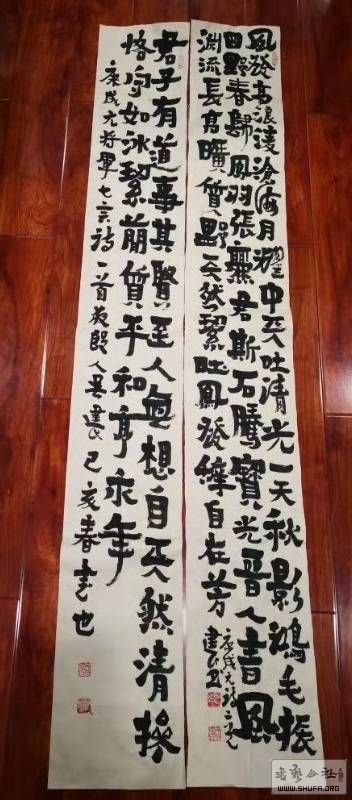 風發高浪凌滄海月耀中天吐清光一天秋影鴻毛振
田野春歸鳳羽張爨君斯石騰寶光晉人書風
淵流長高曠質野天然絜吐鳳發自在芳
庚戌元
建
君子有道事其賢至人無想自天然清操
恪守如冰絜簡質平和享永年
庚戌元將畢七言詩一首殷人吳建民己亥春書也
书法公社
WWW.SHUFA.ORG